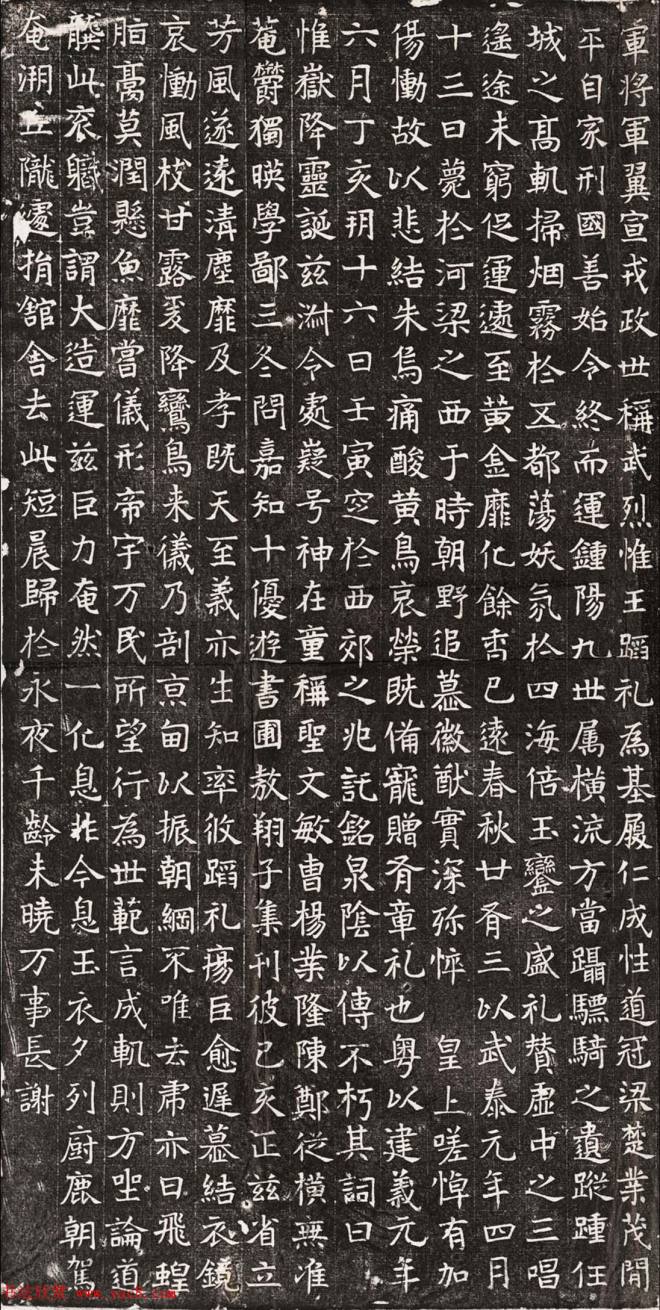 軍將軍翼宣戎政世稱武烈惟王蹈礼為基履仁成性道冠梁楚業茂閒
平自家刑國善始令終而運鍾陽九世属橫流方當躡驃騎之遺蹤踵任
城之髙軌掃烟霧於五都蕩妖氛於四海倍玉鑾之盛礼賛虛中之三唱
遙途未窮促運遽至黄金靡化餘香已遠春秋廿有三以武泰元年四月
十三日薨於河梁之西于時朝野追慕徽猷實深殄悴 皇上嗟悼有加
傷慟故以悲結朱烏痛酸黄鳥哀榮既俻寵贈有章礼也粤以建義元年
六月丁亥玥十六日壬寅窆於西郊之兆託銘泉陰以傳不朽其詞曰
惟嶽降靈誕茲淵令處嶷号神在童稱聖文敏曺楊業隆陳鄭從横無准
菴欝獨暎學鄙三冬問嘉知十優遊書圃敖翔子集刊彼己亥正茲省立
芳風遂遠清塵靡及孝既天至義亦生知率攸蹈礼瘍巨愈遲慕結衣鏡
哀慟風枝甘露爰降鸞鳥来儀乃剖京甸以振朝綱不唯去甫亦曰飛蝗
脂膏莫潤懸魚靡嘗儀形帝宇万民所望行為世範言成軌則方坐論道
龔此衮軄豈謂大造運茲巨力奄然一化息非今息玉衣夕列厨鹿朝駕
奄溯丘隴遽捐舘舍去此短晨歸於永夜千齡未曉万事長謝
www.yac8.com